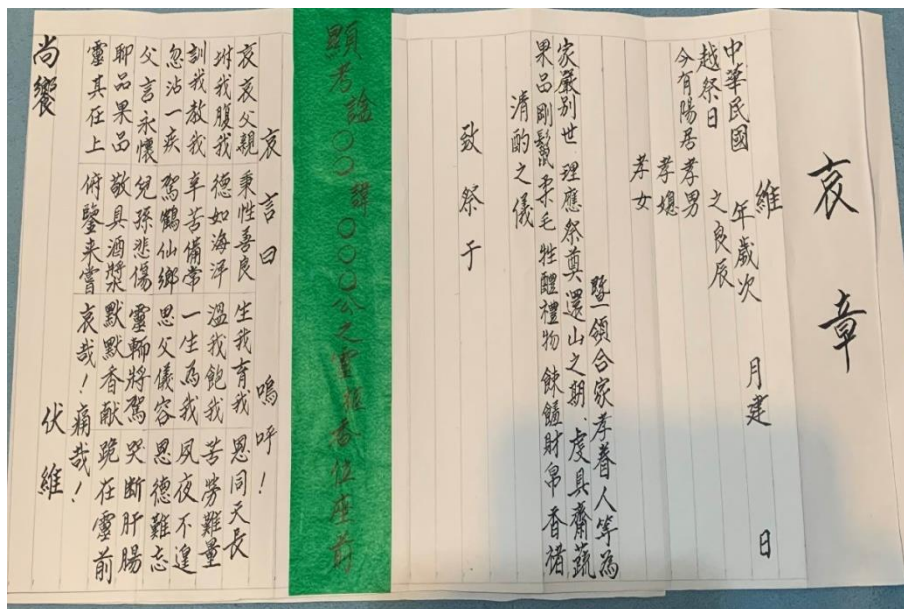 哀章
維
中華民國 年歲次 月建 日
越祭日 之良辰
今有陽居孝男
孝媳
孝女
暨領合家孝眷人等為
家嚴別世 理應祭奠還山之期、虔具齋蔬
果品剛鬣柔毛牲醴禮物 餗饈財帛 香楮
清酌之儀
致祭于
顯考諡○○諱○○○公之靈 香位座前
哀言曰 嗚呼!
哀哀父親 秉性善良 生我育我 恩同天長
拊我腹我 德如海洋 溫我飽我 苦勞難量
訓我教我 辛苦備常 一生為我 夙夜不遑
忽沾一疾 駕鶴仙鄉 思父儀容 恩德難忘
父言永懷 兒孫悲傷 靈輀將駕 哭斷肝腸
聊品果品 敬具酒漿 默默香獻 跪在靈前
靈其在上 俯鑒来嘗 哀哉!痛哉!
伏維
尚饗